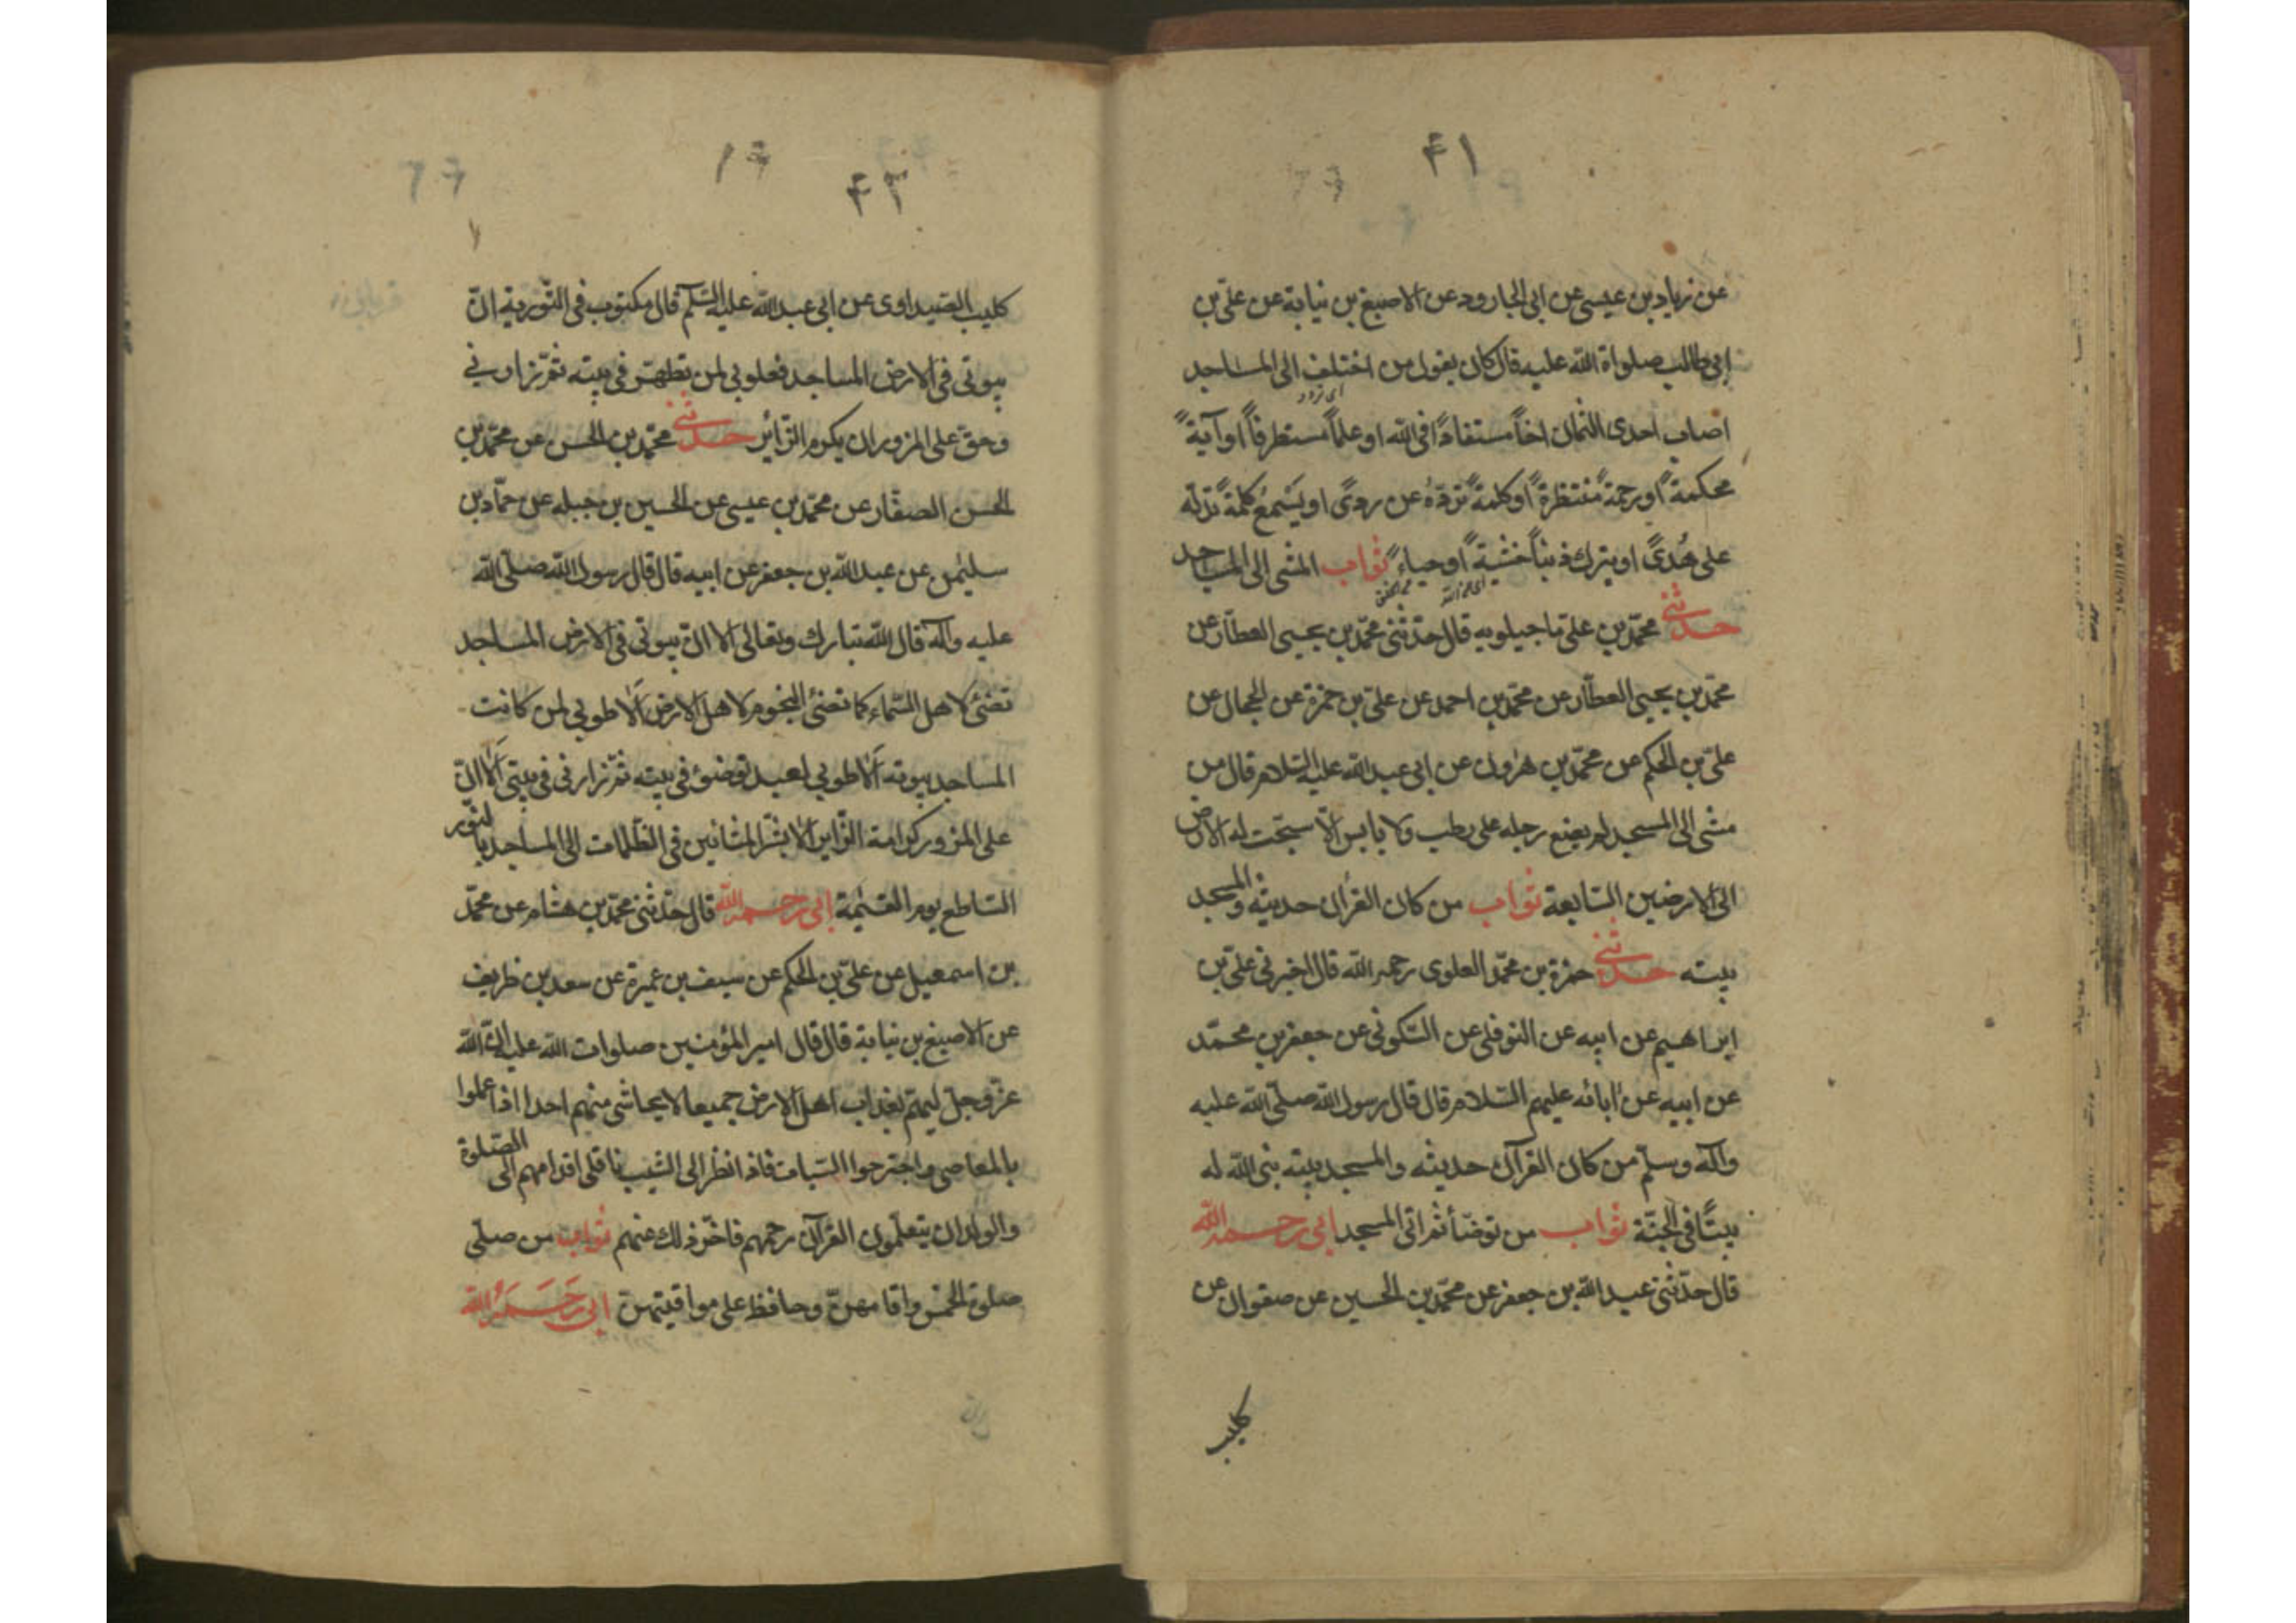 ۴۱
عن زياد بن عيسى عن ابى الجارود عن الاصبغ بن نباتة عن علىّ بن
ابى طالب صلواة الله عليه قال كان يقول من اختلف الى المساجد
اصاب احدى الثمان اخاً مستفاداً فى الله او علماً مستطرفاً او آيةً
محكمةً او رحمةً منتظرةً او كلمةً تردّه عن ردىً او يَسْمَعُ كلمةً تدلّه
على هُدىً او يترك ذنباً خشيةً او حياءً ثواب المشى الى المساجد
حدثنى محمّد بن علىّ ماجيلويه قال حدّثنى محمّد بن يحيى العطّار عن
محمّد بن يحيى العطّار عن محمّد بن احمد عن علىّ بن حمزة عن الحجال عن
علىّ بن الحكم عن محمّد بن هرون عن ابى عبد الله عليه السّلام قال من
مشى الى المسجد لم يضع رجله على رطب ولا يابس الّا سبّحت له الارض
الى الارضين السّابعة ثواب من كان القرأن حديثه والمسجد
بيته حدثنى حمزة بن محمّد العلوى رحمه الله قال اخبرنى على بن
ابراهيم عن ابيه عن النوفلى عن السّكونى عن جعفر بن محمّد
عن ابيه عن آبائه عليهم السّلام قال قال رسول الله صلّى الله عليه
وآله وسلّم من كان القرآن حديثه والمسجد بيته بنى الله له
بيتًا فى الجنّة ثواب من توضّأ ثم اتى المسجد ابى رحمه الله
قال حدّثنى عبد الله بن جعفر عن محمّد بن الحسين عن صفوان عن
كليب
۴۲
كليب الصّيداوى عن ابى عبد الله عليه السّلم قال مكتوب فى التّورية انّ
بيوتى فى الارض المساجد فطوبى لمن تطهّر فى بيته ثمّ زارنى
وحقّ على المزور ان يكرم الزّائر حدثنى محمّد بن الحسن عن محمّد بن
الحسن الصفّار عن محمّد بن عيسى عن الحسين بن جبله عن حمّاد بن
سليمن عن عبد الله بن جعفر عن ابيه قال قال رسول الله صلّى الله
عليه وآله قال الله تبارك وتعالى الا انّ بيوتى فى الارض المساجد
تضئ لاهل السّماء كما تضئ النجوم لاهل الارض اَلا طوبى لمن كانت
المساجد بيوته اَلا طوبى لعبد توضئ فى بيته ثمّ زارنى فى بيتى اَلا انّ
على المزور كرامة الزّاير الا بشّر المشّائين فى الظّلمات الى المساجد بالنّور
السّاطع يوم القيمة ابى رحمه الله قال حدّثنى محمّد بن هشام عن محمّد
بن اسمعيل عن علىّ بن الحكم عن سيف بن عميرة عن سعد بن ظريف
عن الاصبغ بن نباتة قال قال امير المؤمنين صلوات الله عليه انّ الله
عزّ وجلّ ليهمّ بعذاب اهل الارض جميعا لا يحاشى منهم احدا اذا عملوا
بالمعاصى واجترحوا السّيات فاذا نظر الى الشّيب ناقلى اقدامهم الى الصّلوة
والولدان يتعلّمون القرآن رحمهم فاخّر ذلك عنهم ثواب من صلّى
صلوة الخمس واقامهنّ وحافظ على مواقيتهنّ ابى رَحِمَهُ الله